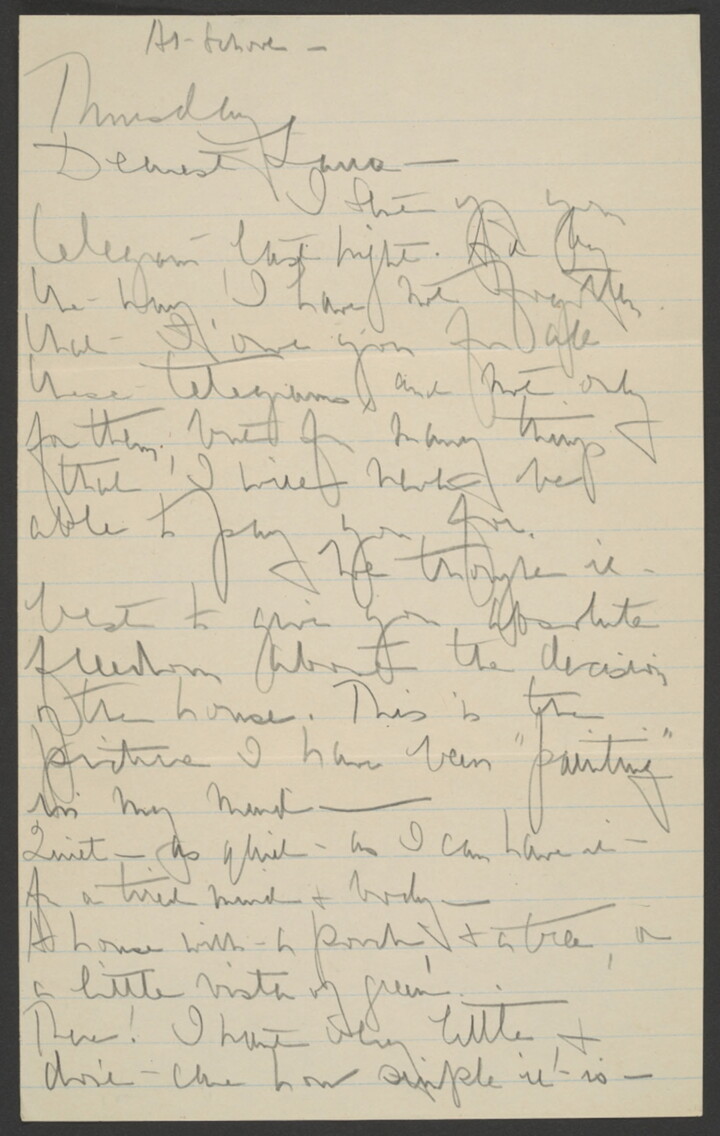 At-School –
Thursday
Dearest Lana —
I sent you
telegram last night. And by
the way I have not forgotten
that I owe you for all
these telegrams, and not only
for them, but for many things
that I will never be
able to pay you for.
We thought it
best to give you absolute
freedom about the decision
of the house. This is the
picture I have been "painting"
in my mind —
Quiet – as quiet – as I can have it –
for a tired mind & body —
A house with a porch & a tree, or
a little vista of green! .
There! I want very little &
don't care how simple it is —